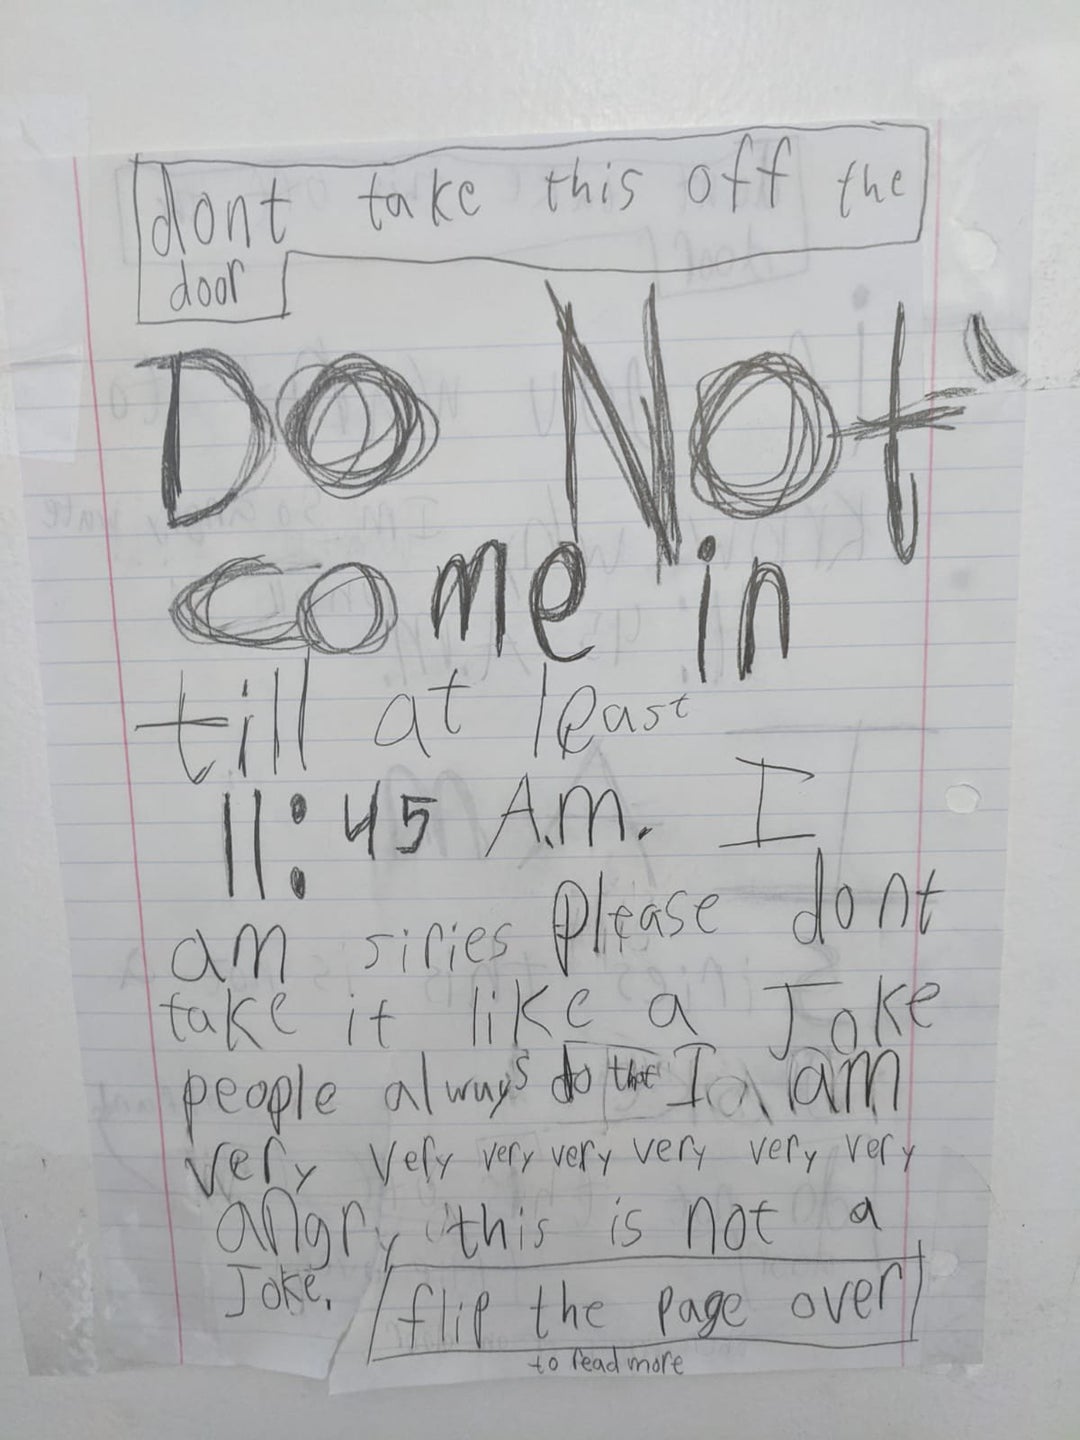 dont take this off the
door
Do Not
come in
till at least
11:45 A.m. I
am siries please dont
take it like a Joke
people always do that I am
very very very very very very very
angry this is not a
Joke.
flip the page over
to read more